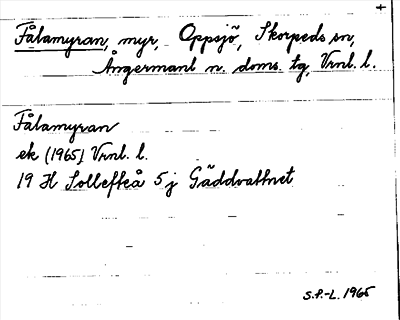 Fålamyran, myr, Oppsjö, Skorpeds sn,
Ångermanl n. doms. tg, Vrnl. l.
Fålamyran
ek (1965) Vrnl. l.
19 H Sollefteå 5 j Gäddvattnet
S.P.-L. 1965